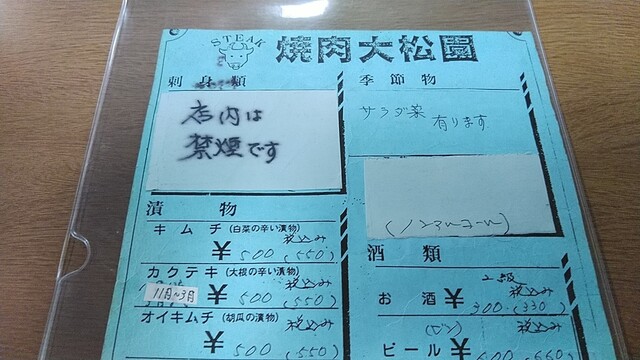 STEAK
焼肉大松園
刺身類
店内は
禁煙です
漬物
キムチ (白菜の辛い漬物)
税込み
¥500(550)
カクテキ (大根の辛い漬物)
税込み
11月~3月
¥500(550)
オイキムチ (胡瓜の漬物)
税込み
¥500(550)
季節物
サラダ菜
有ります
(ノンアルコール)
酒類
上級
税込み
お酒 ¥300(330)
(ビン)
税込み
ビール ¥600(660)